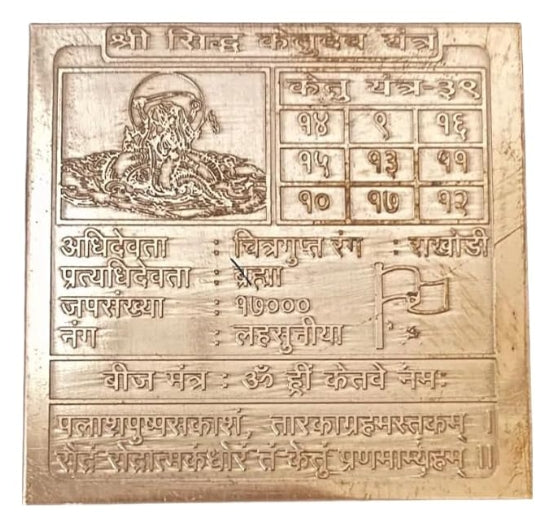 श्री सिद्ध केतुदेव यंत्र
केतु यंत्र-३९
१४ ९ १६
१५ १३ ११
१० १७ १२
अधिदेवता : चित्रगुप्त रंग : राखोडी
प्रत्यधिदेवता : ब्रह्मा
जपसंख्या : १७०००
नंग : लहसुनीया
बीज मंत्र : ॐ ह्रीं केतवे नमः
पलाशपुष्पसकाशं, तारकाग्रहमस्तकम् ।
रौद्रं रौद्रात्मकंघोरं तं केतुं प्रणमाम्यहम् ॥